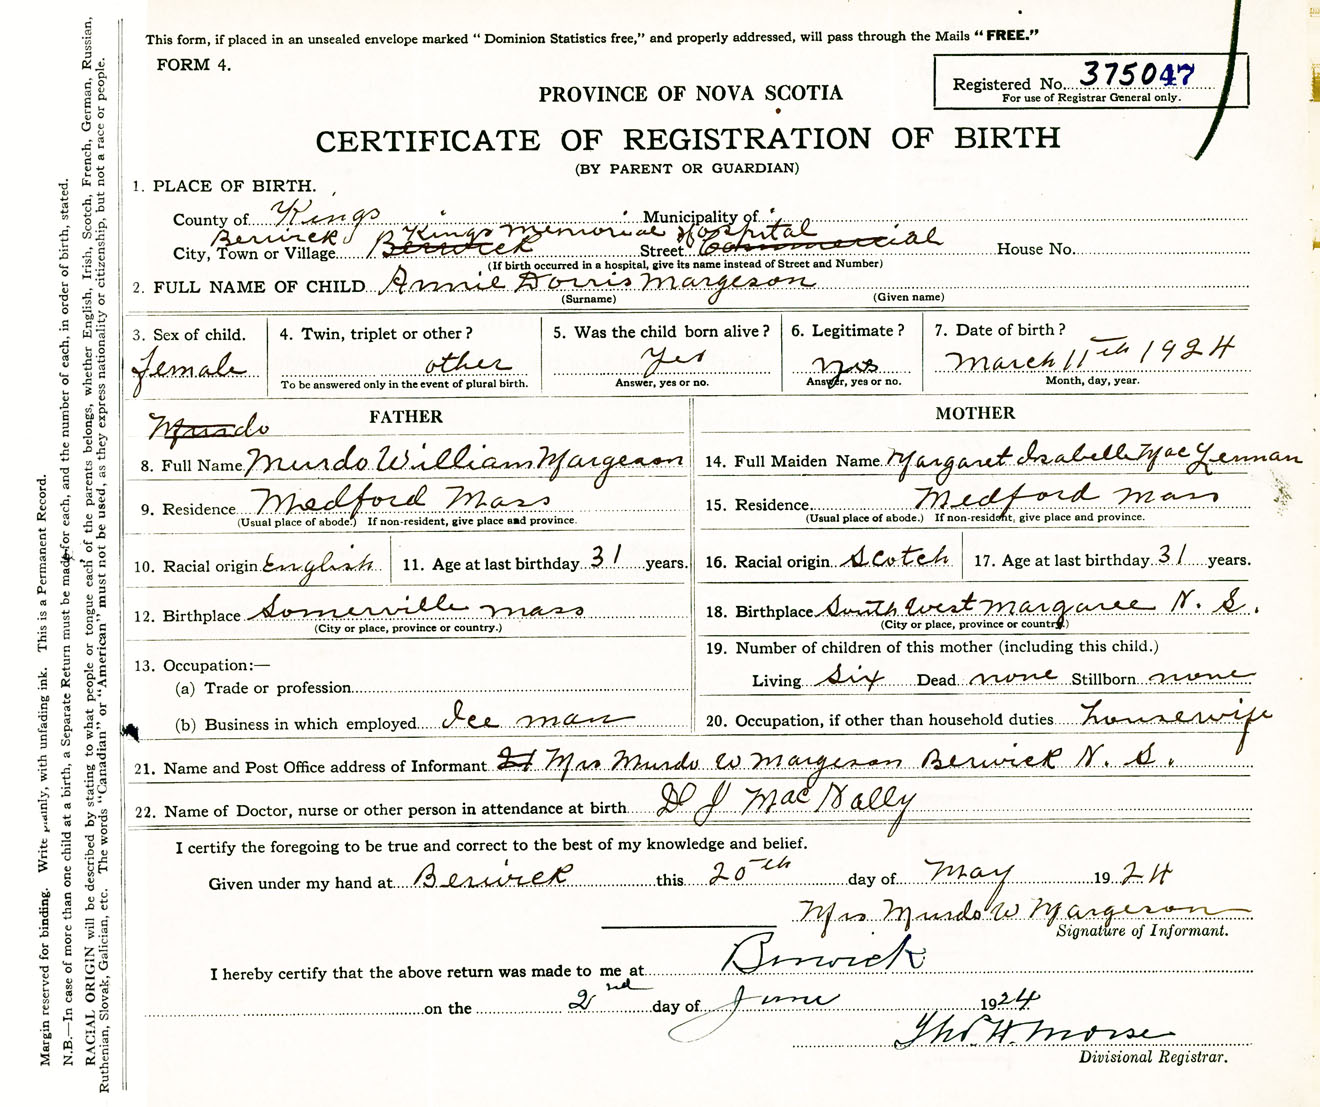 This form, if placed in an unsealed envelope marked “ Dominion Statistics free,” and properly addressed, will pass through the Mails “ FREE.”
FORM 4.
Registered No. 375047
For use of Registrar General only.
PROVINCE OF NOVA SCOTIA
CERTIFICATE OF REGISTRATION OF BIRTH
(BY PARENT OR GUARDIAN)
1. PLACE OF BIRTH.
County of Kings Municipality of
Berwick Kings Memorial Hospital
City, Town or Village Berwick Street Commercial House No.
(If birth occurred in a hospital, give its name instead of Street and Number)
2. FULL NAME OF CHILD Annie Dorris Margeson
(Surname) (Given name)
3. Sex of child. 4. Twin, triplet or other ? 5. Was the child born alive ? 6. Legitimate ? 7. Date of birth ?
female other Yes yes March 11th 1924
To be answered only in the event of plural birth. Answer, yes or no. Answer, yes or no. Month, day, year.
FATHER MOTHER
Murdo
8. Full Name Murdo William Margeson 14. Full Maiden Name Margaret Isabelle MacLennan
9. Residence Medford Mass 15. Residence Medford Mass
(Usual place of abode.) If non-resident, give place and province. (Usual place of abode.) If non-resident, give place and province.
10. Racial origin English 11. Age at last birthday 31 years. 16. Racial origin Scotch 17. Age at last birthday 31 years.
12. Birthplace Somerville Mass 18. Birthplace South West Margaree N. S.
(City or place, province or country.) (City or place, province or country.)
13. Occupation:— 19. Number of children of this mother (including this child.)
(a) Trade or profession Living Six Dead none Stillborn none
(b) Business in which employed Ice man 20. Occupation, if other than household duties housewife
21. Name and Post Office address of Informant Mrs Murdo W Margeson Berwick N. S.
22. Name of Doctor, nurse or other person in attendance at birth D J MacNally
I certify the foregoing to be true and correct to the best of my knowledge and belief.
Given under my hand at Berwick this 20th day of May 1924
Mrs Murdo W Margeson
Signature of Informant.
I hereby certify that the above return was made to me at Berwick
on the 2nd day of June 1924
Thos. H. Morse
Divisional Registrar.
Margin reserved for binding. Write plainly, with unfading ink. This is a Permanent Record.
N.B.—In case of more than one child at a birth, a Separate Return must be made for each, and the number of each, in order of birth, stated.
RACIAL ORIGIN will be described by stating to what people or tongue each of the parents belongs, whether English, Irish, Scotch, French, German, Russian,
Ruthenian, Slovak, Galician, etc. The words “Canadian” or “American” must not be used, as they express nationality or citizenship, but not a race or people.